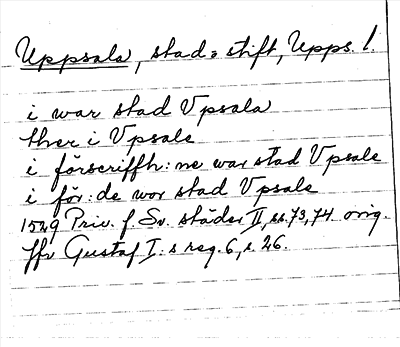 Uppsala, stad o stift, Upps. l.
i war stad Vpsala
ther i Vpsale
i förscriffh: ne war stad Vpsale
i för: de wor stad Vpsale
1529 Priv. f. Sv. städer II, ss. 73, 74 orig.
Jfr Gustaf I: s reg. 6, s. 26.